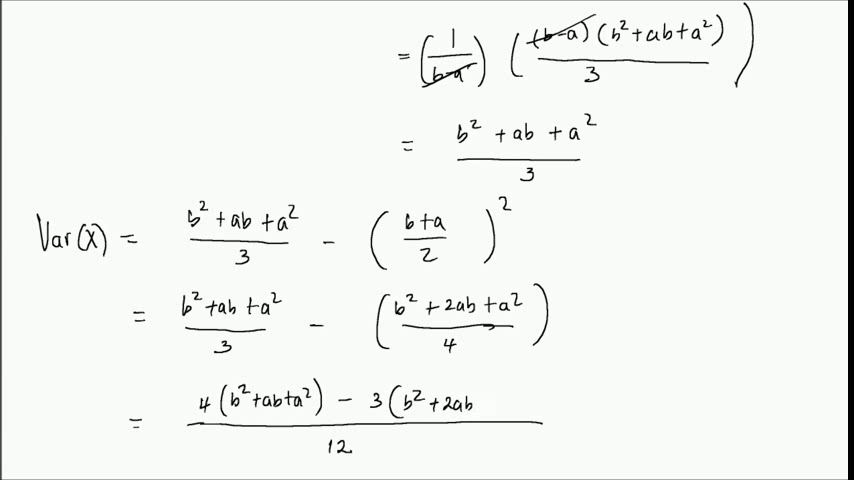 = (1/(b-a)) ((b-a)(b²+ab+a²)/3)
= (b² + ab + a²)/3
Var(X) = (b² + ab + a²)/3 - ((b+a)/2)²
= (b² + ab + a²)/3 - ((b² + 2ab + a²)/4)
= (4(b²+ab+a²) - 3(b²+2ab)/12